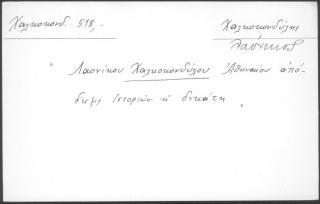 Χαλκοκονδ. 518,-
Χαλκοκονδύλης
Λαόνικος
" Λαονίκου Χαλκοκονδύλου Ἀθηναίου ἀπό-
δειξις ἱστοριῶν ἡ δεκάτη "